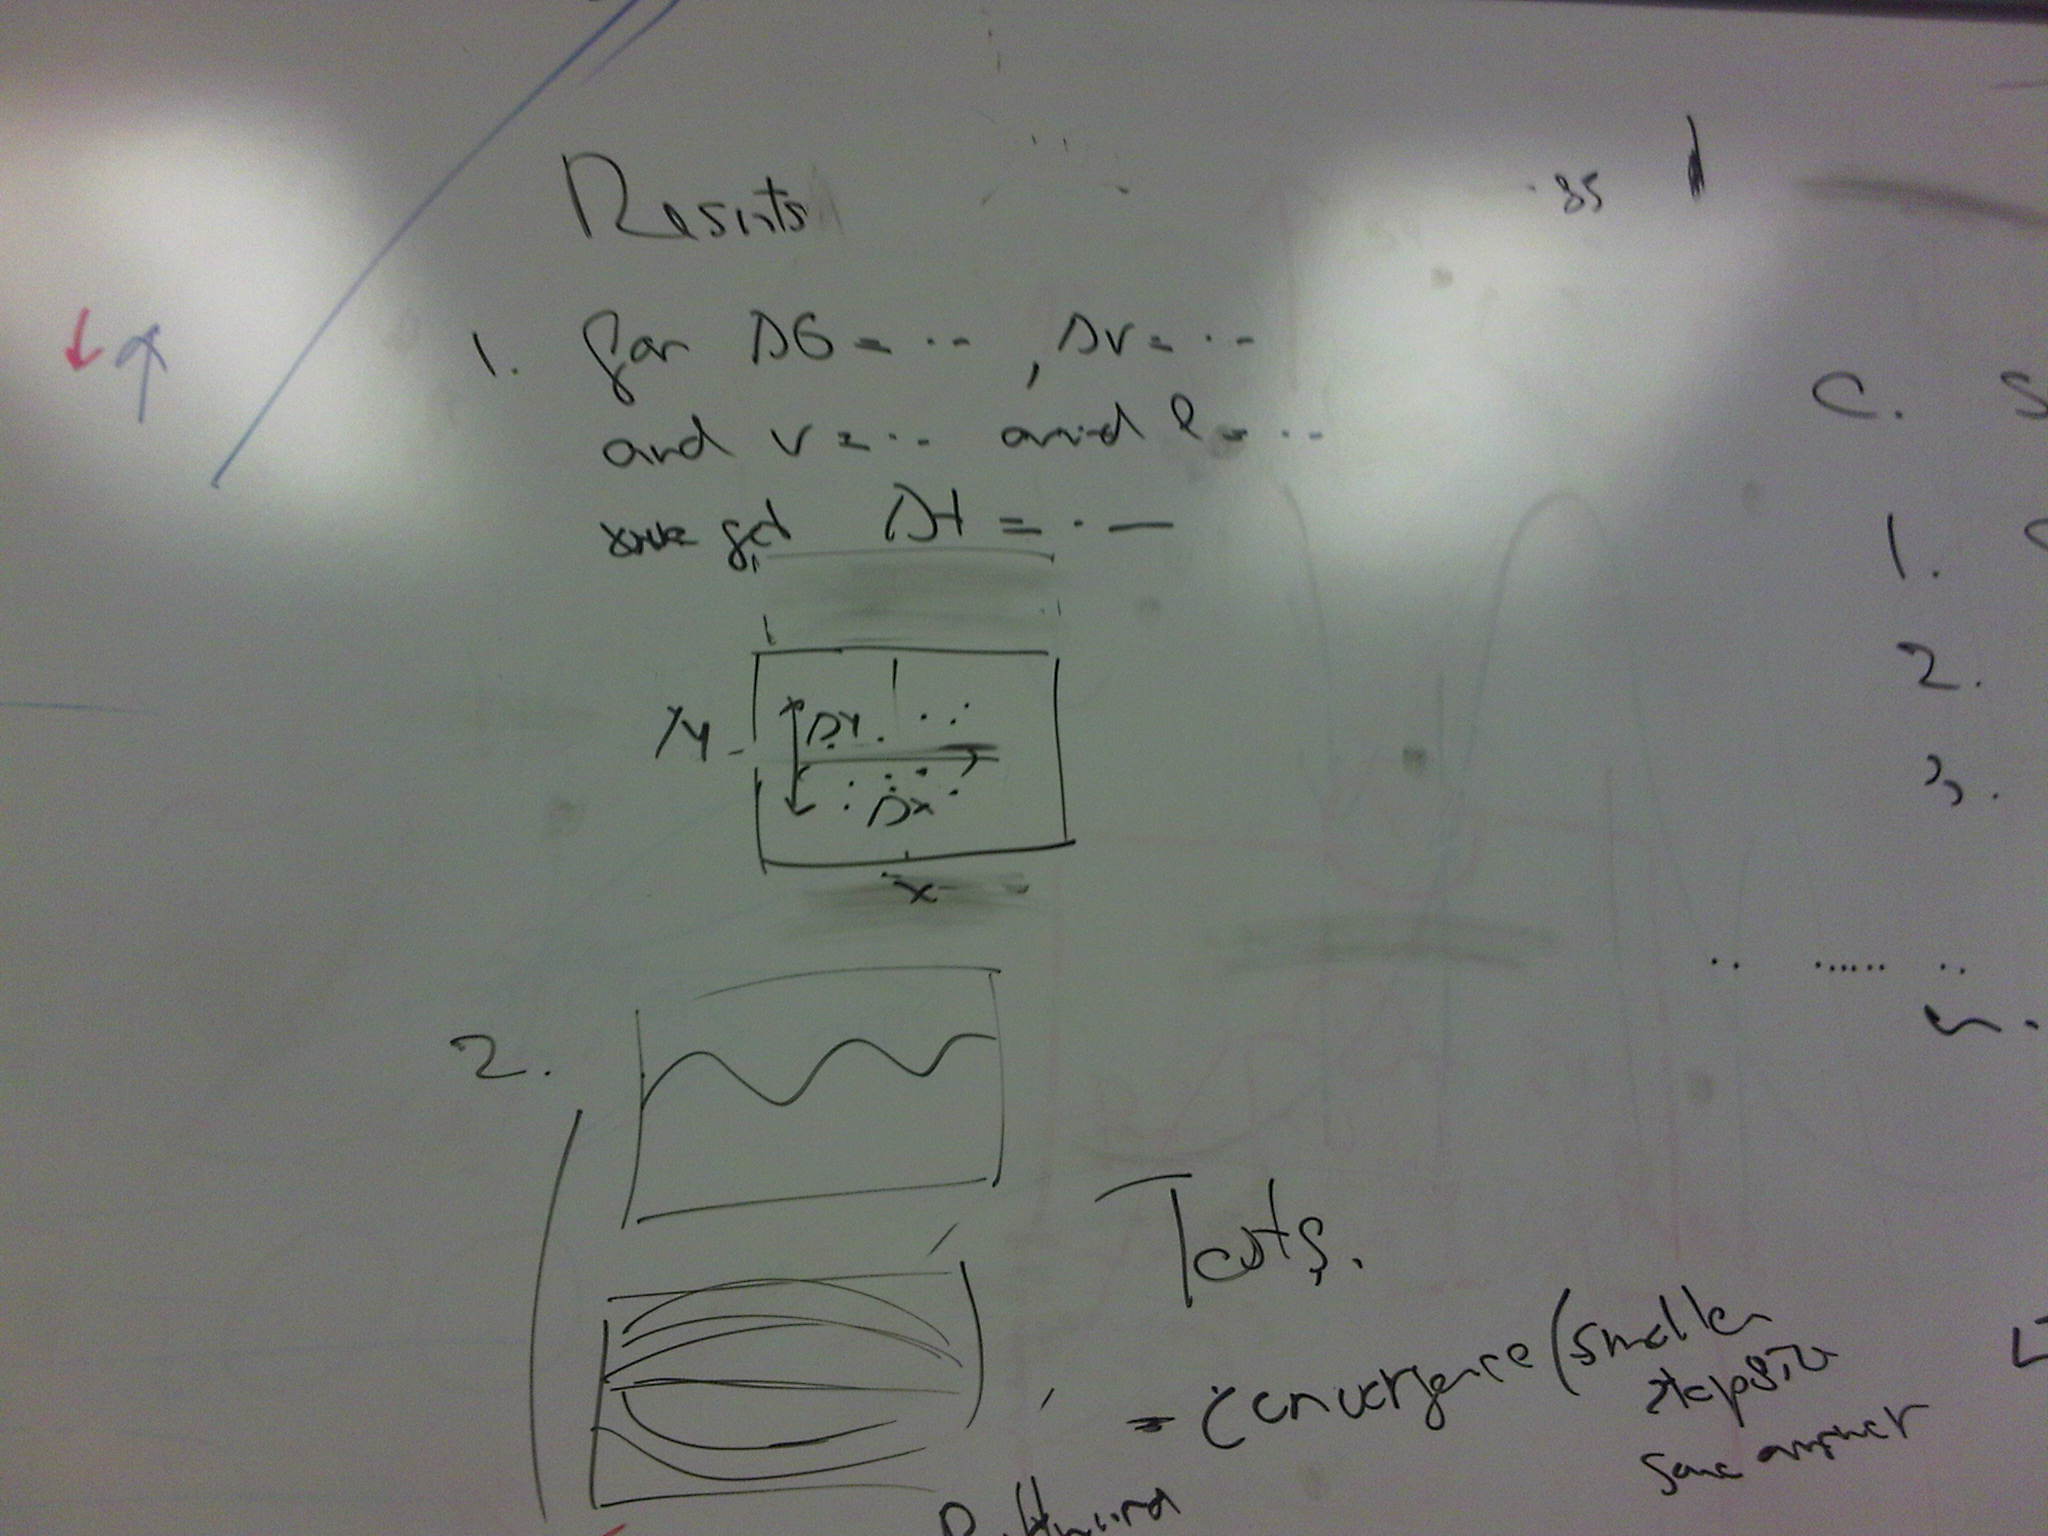 Results
.85
1. for ΔG = ... , Δv = ...
and v = ... and l = ...
we get Δt = ...
C. S
1.
2.
3.
Δy
y
Δx
x
2.
Tests.
- Convergence (smaller
stepsize
same answer